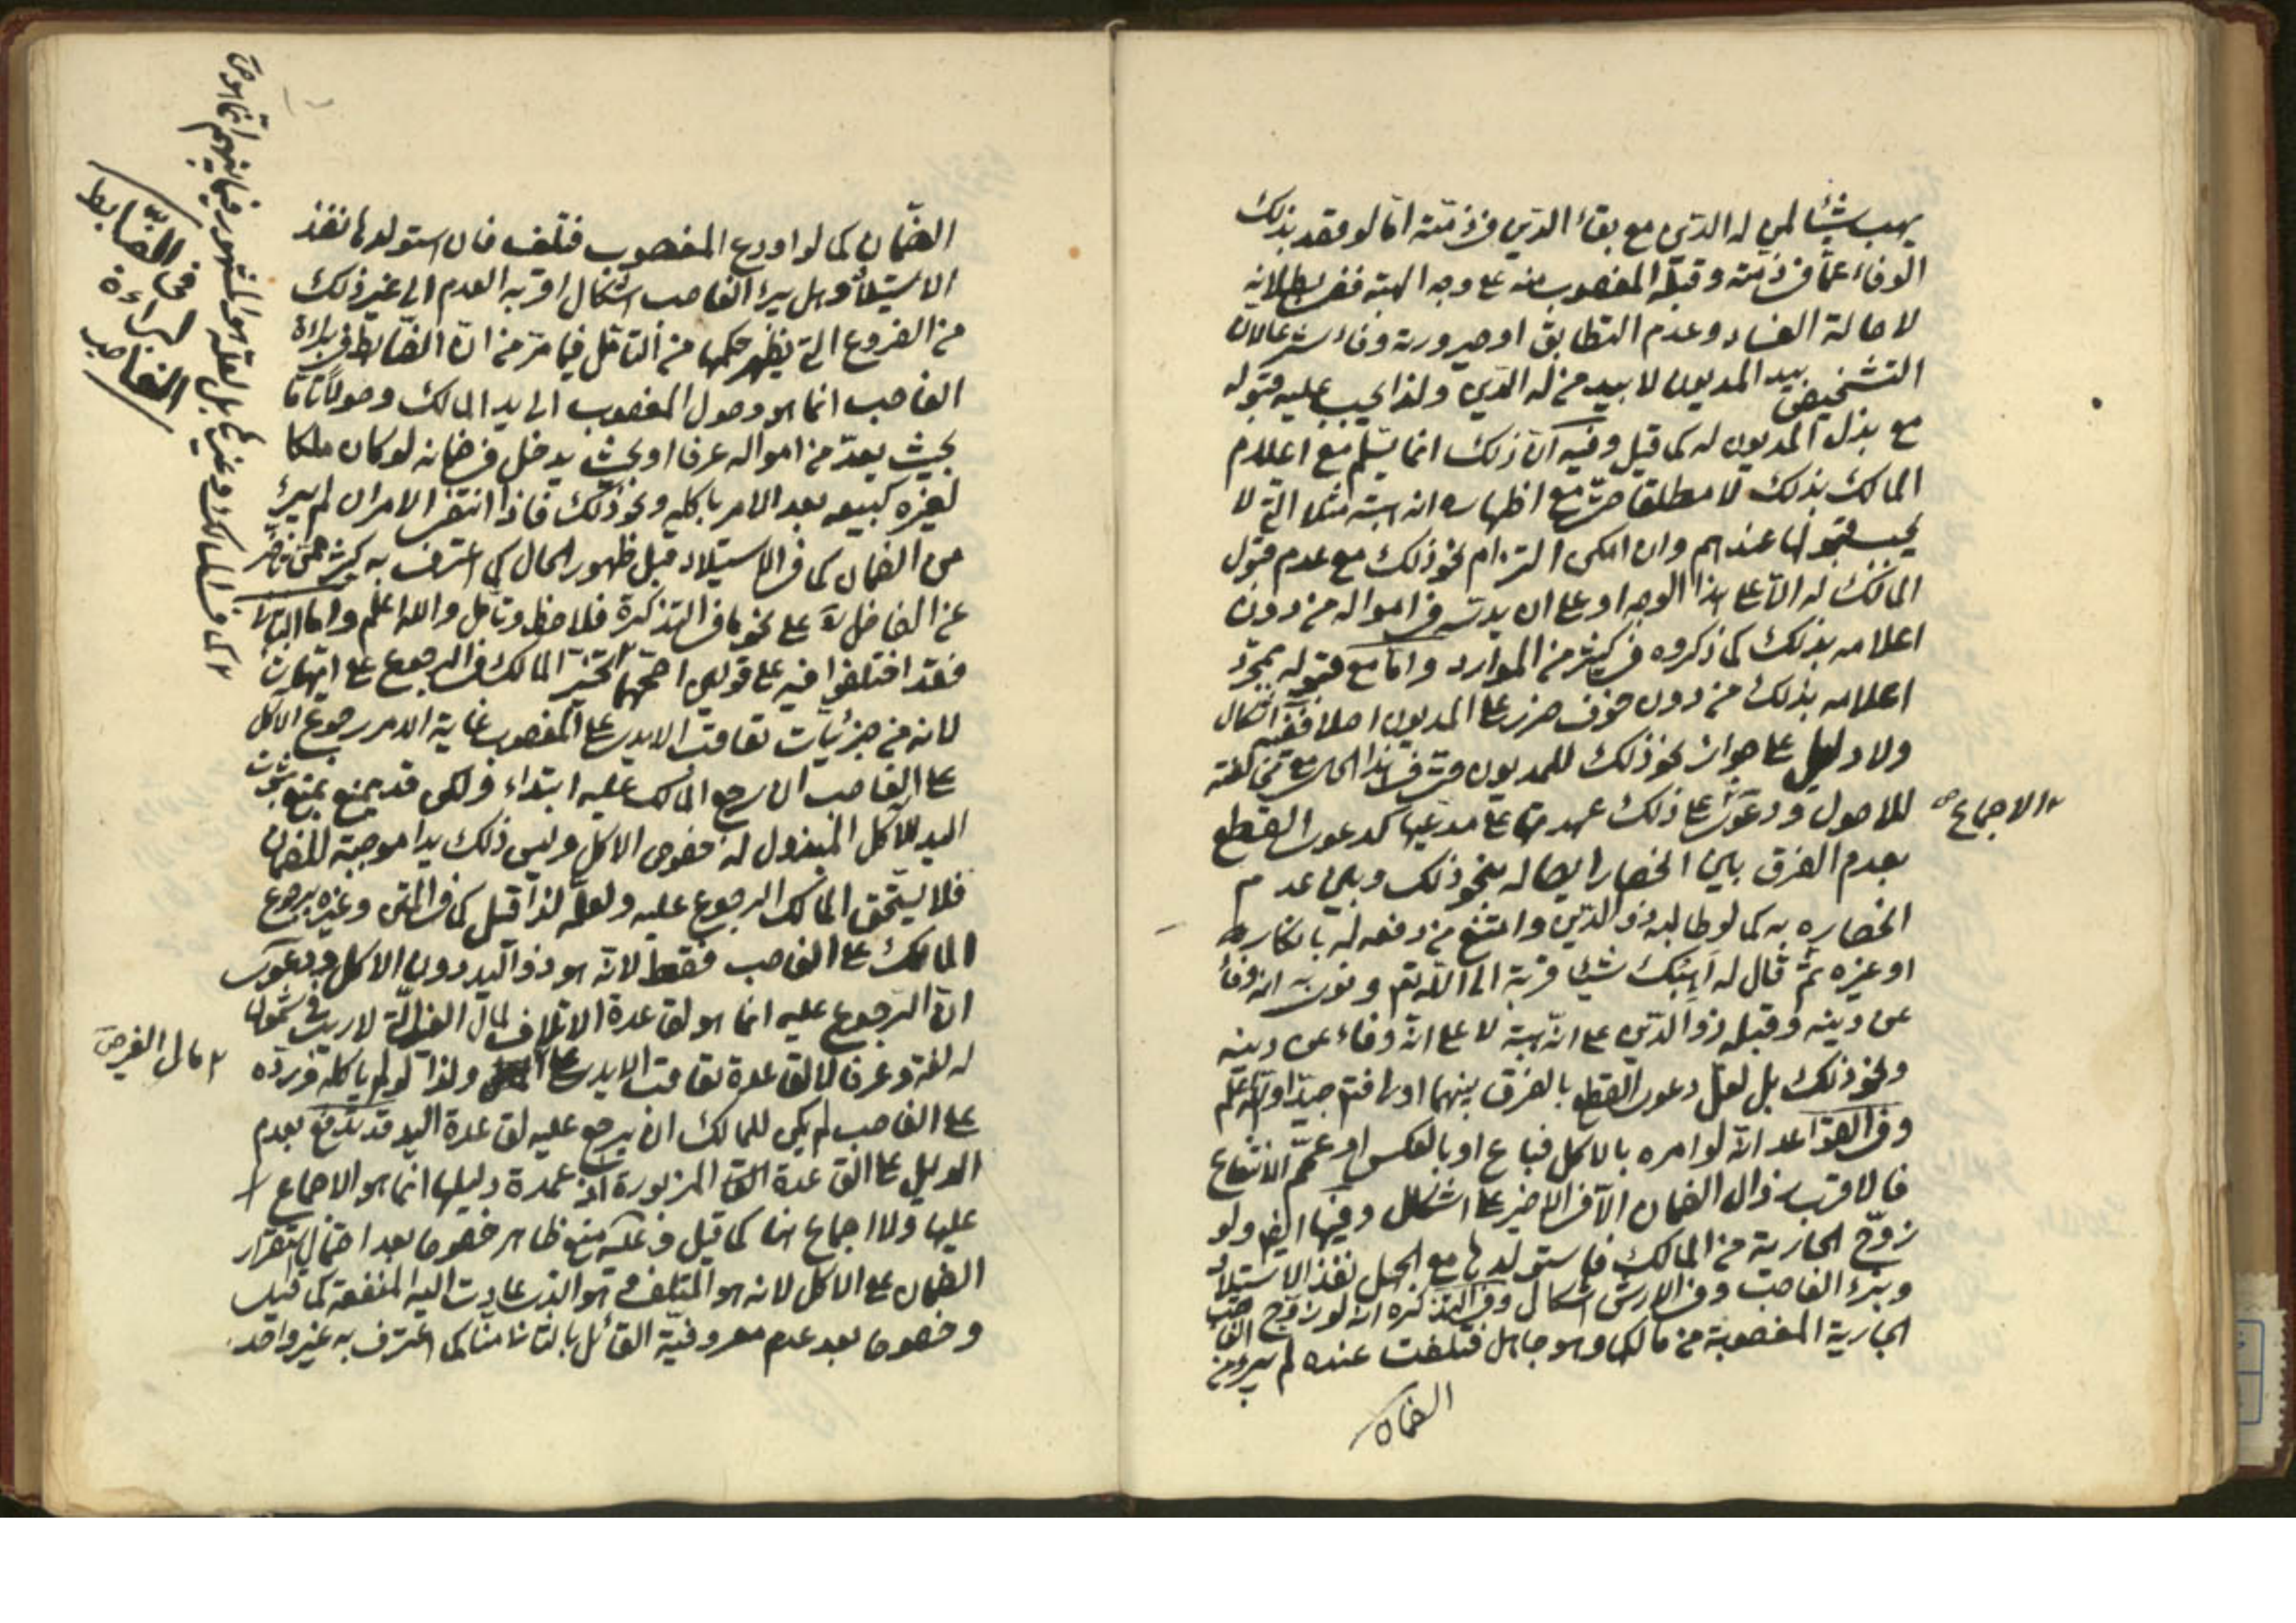 يهب شيئا لمن له الدين مع بقاء الدين في ذمته اما لو قصد بذلك
الوفاء عما في ذمته وقبله المغصوب منه على وجه الهبة ففي بطلانه
لاصالة الفساد وعدم التطابق او صيرورته وفاء شرعا لان
التشخيص بيد المديون لا بيد من له الدين ولذا يجب عليه قبوله
مع بذل المديون له كما قيل وفيه ان ذلك انما يسلم مع اعلام
المالك بذلك لا مطلقا حتى مع اظهاره انه هبة مثلا التي لا
يجب قبولها عندهم وان امكن التزام نحو ذلك مع عدم قبول
المالك له الا على هذا الوجه او على ان يدسه في امواله من دون
اعلامه بذلك كما ذكروه في كثير من الموارد واما مع قبوله بمجرد
اعلامه بذلك من دون خوف ضرر على المديون اصلا ففيه اشكال
ولا دليل على جواز نحو ذلك للمديون حتى في هذا الحال مع مخالفته
للاصول ودعوى على ذلك عهدتها على مدعيها كدعوى القطع
الاجماع صح
بعدم الفرق بين انحصار ايصاله بنحو ذلك وبين عدم
انحصاره به كما لو طالبه ذو الدين وامتنع من دفعه له بانكاره
او غيره ثم قال له اهبك شيئا قربة الى الله تعالى ونوى انه وفاء
عن دينه وقبله ذو الدين على انه هبة لا على انه وفاء عن دينه
ونحو ذلك بل لعل دعوى القطع بالفرق بينهما اولى فتأمل جيدا والله اعلم
وفي القواعد انه لو امره بالاكل فباع او بالعكس او عمم الانتفاع
فالاقرب زوال الضمان الا في الاخير على اشكال وفيها ايضا ولو
زوج الجارية من المالك فاستولدها مع الجهل نفذ الاستيلاد
وبرئ الغاصب وفي الارش اشكال وفي التذكرة انه لو زوج الغاصب
الجارية المغصوبة من مالكها وهو جاهل فتلفت عنده لم يبرء من
الضمان
الضمان كما لو اودع المغصوب فتلف فان استولدها نفذ
الاستيلاد وهل يبرئ الغاصب اشكال اقربه العدم الى غير ذلك
من الفروع التي يظهر حكمها من التأمل فيما مر من ان الضابط في براءة
الغاصب انما هو وصول المغصوب الى يد المالك وصولا تاما
بحيث يعد من امواله عرفا او بحيث يدخل في ضمانه لو كان ملكا
لغيره كبيعه بعد الامر باكله ونحو ذلك فاذا انتفى الامران لم يبرئ
من الضمان كما في الاستيلاد قبل ظهور الحال كما اعترف به كثير ممن تأخر
عن الفاضل على نحو ما في التذكرة فلاحظ وتأمل والله اعلم واما الثاني
فقد اختلفوا فيه على قولين اصحهما تخير المالك في الرجوع على ايهما
لانه من جزئيات تعاقب الايدي على المغصوب غاية الامر رجوع الاكل
على الغاصب ان رجع المالك عليه ابتداء ولكن قد يمنع بمنع ثبوت
اليد للاكل المبذول له خصوص الاكل وليس ذلك يدا موجبة للضمان
فلا يستحق المالك الرجوع عليه ولعله لذا قيل كما في المتن وغيره يرجع
المالك على الغاصب فقط لانه هو ذو اليد دون الاكل ودعوى
ان الرجوع عليه انما هو لقاعدة الاتلاف لمال الغير التي لا ريب في شمولها
له لغة وعرفا لا لقاعدة تعاقب الايدي على ولذا لو لم ياكله فرده
مال الغير صح
على الغاصب لم يكن للمالك ان يرجع عليه لقاعدة اليد قد تدفع بعدم
الدليل على القاعدة المزبورة اذ عمدة دليلها انما هو الاجماع
عليها ولا اجماع هنا كما قيل وفيه منع ظاهر خصوصا بعد احتمال استقرار
الضمان على الاكل لانه هو المتلف وهو الذي عادت اليه المنفعة كما قيل
وخصوصا بعد عدم معروفية القائل بالثاني منا كما اعترف به غير واحد
في الضابط
لبراءة
الغاصب